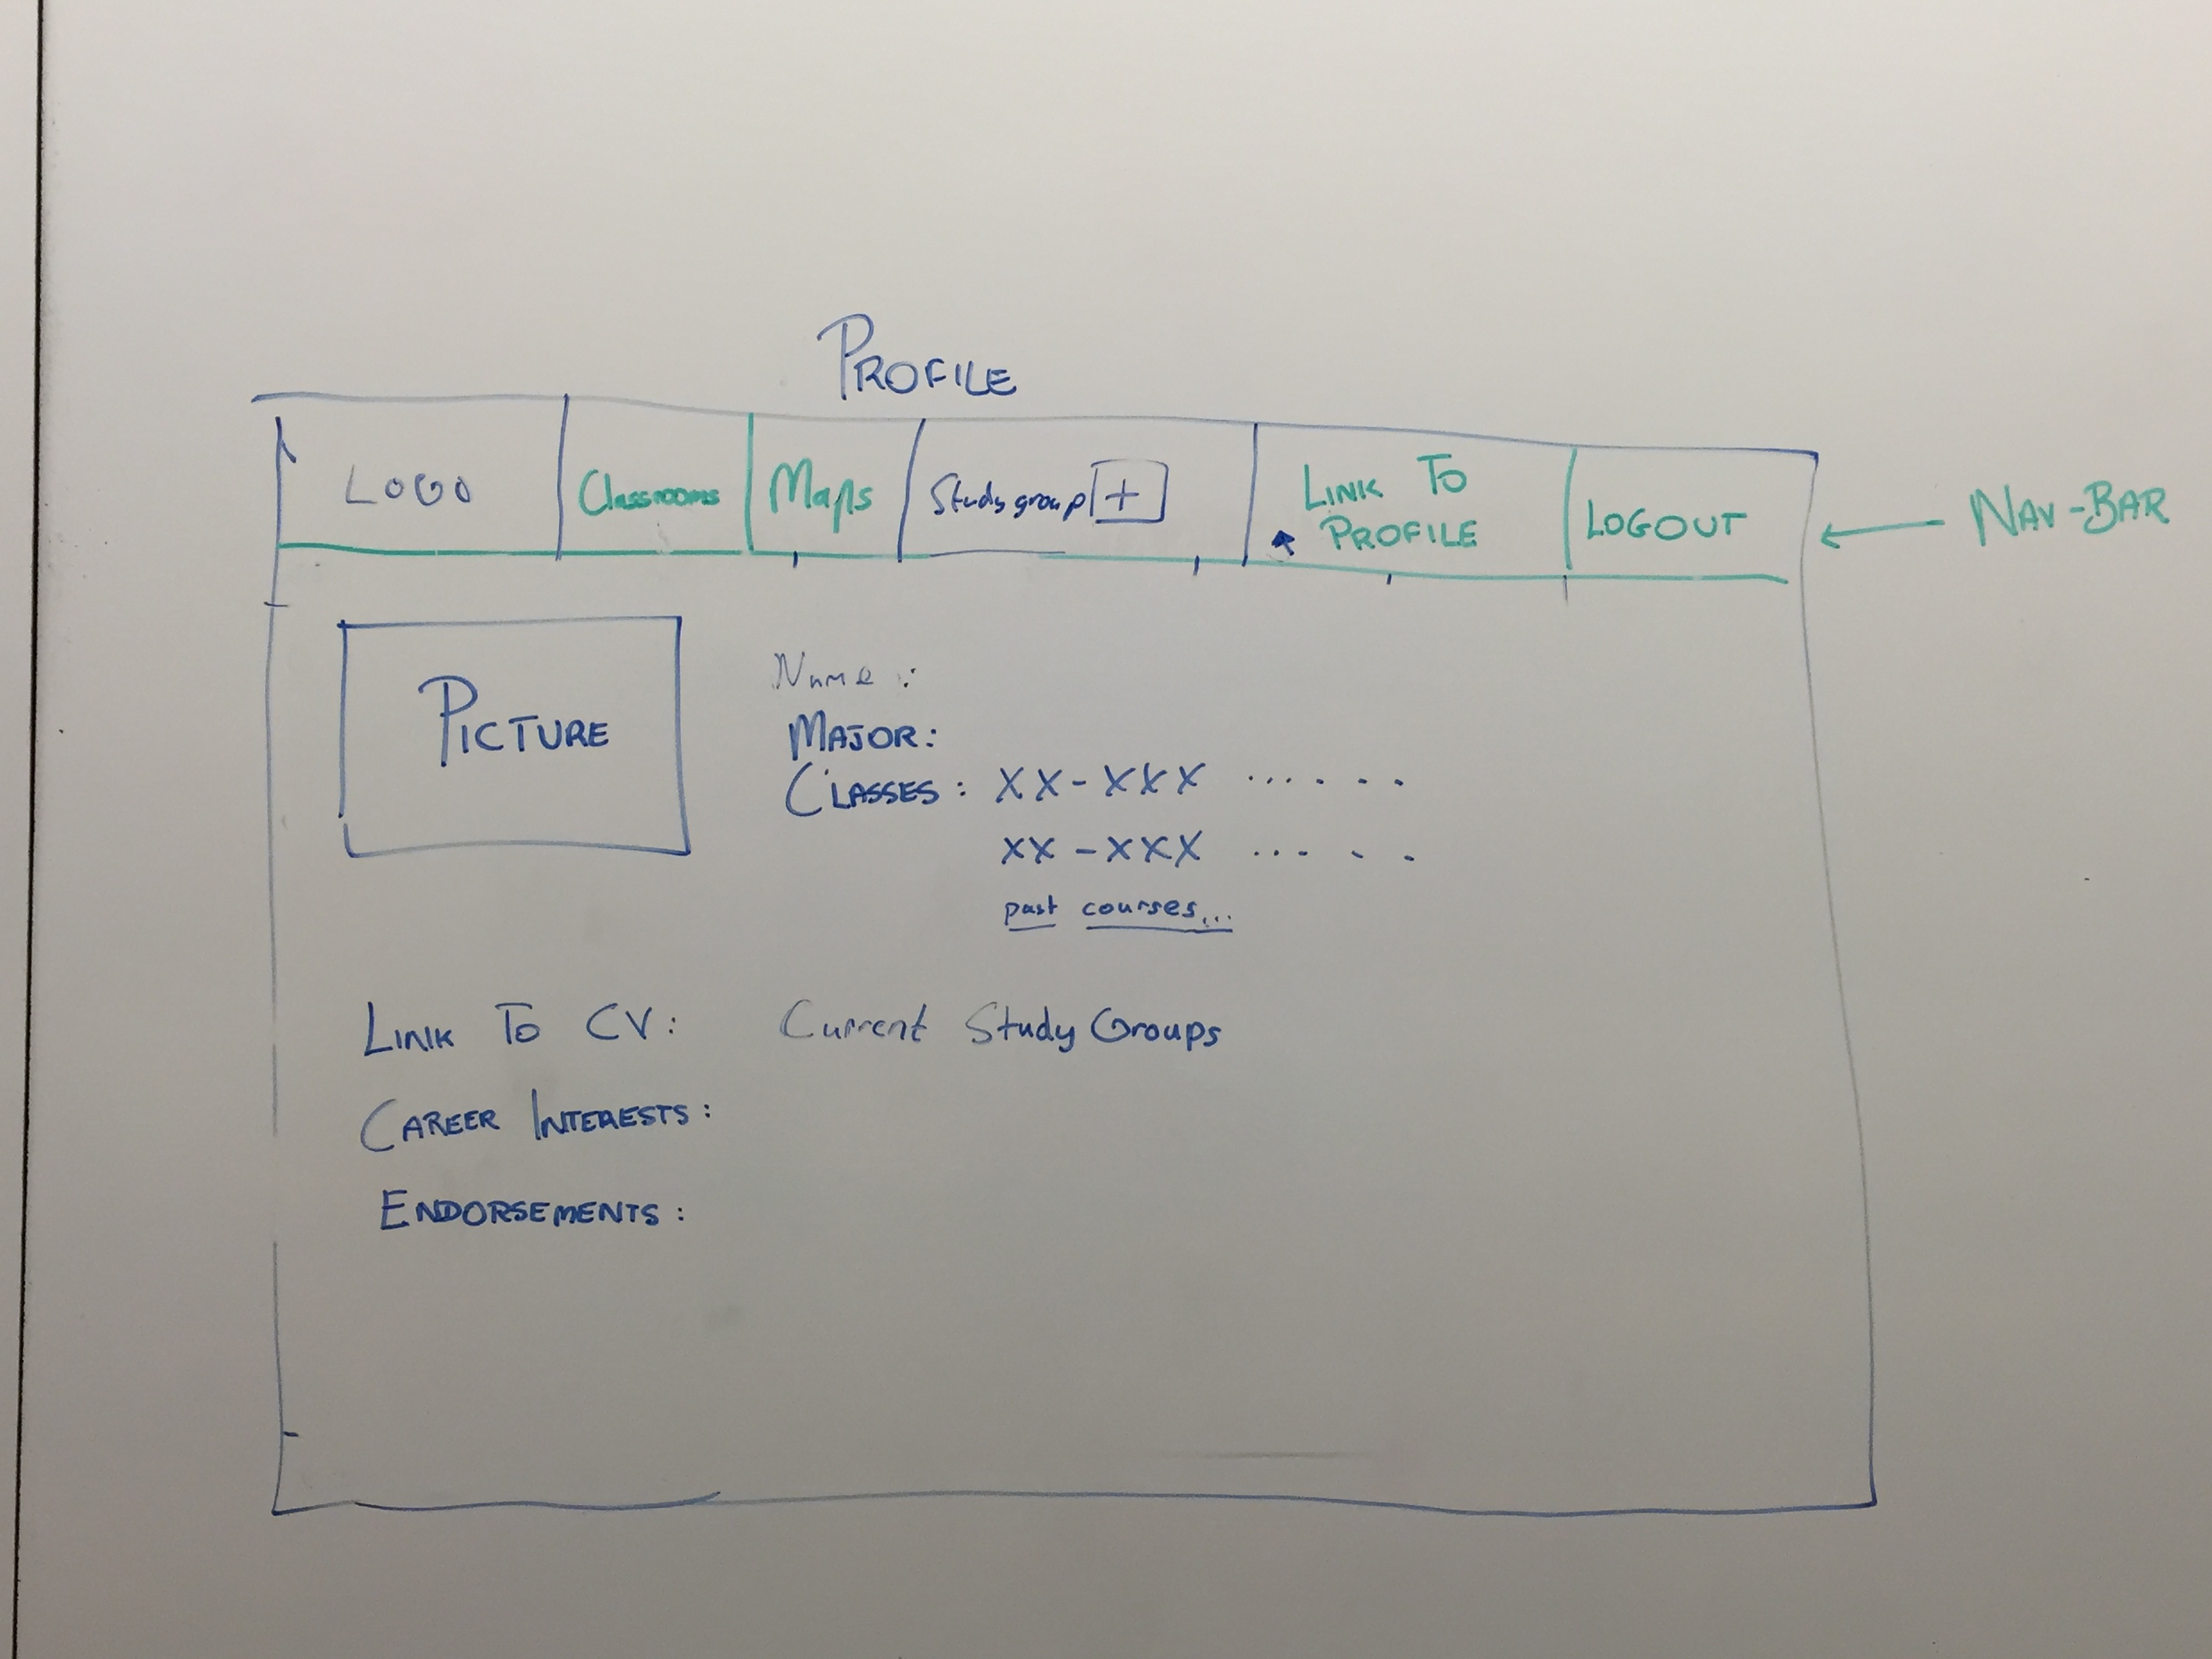 PROFILE
LOGO Classrooms Maps Studygroup + LINK TO PROFILE LOGOUT NAV-BAR
PICTURE
Name :
MAJOR:
CLASSES: XX-XXX .... . . .
XX-XXX ... . .
past courses...
LINK TO CV: Current Study Groups
CAREER INTERESTS:
ENDORSEMENTS: